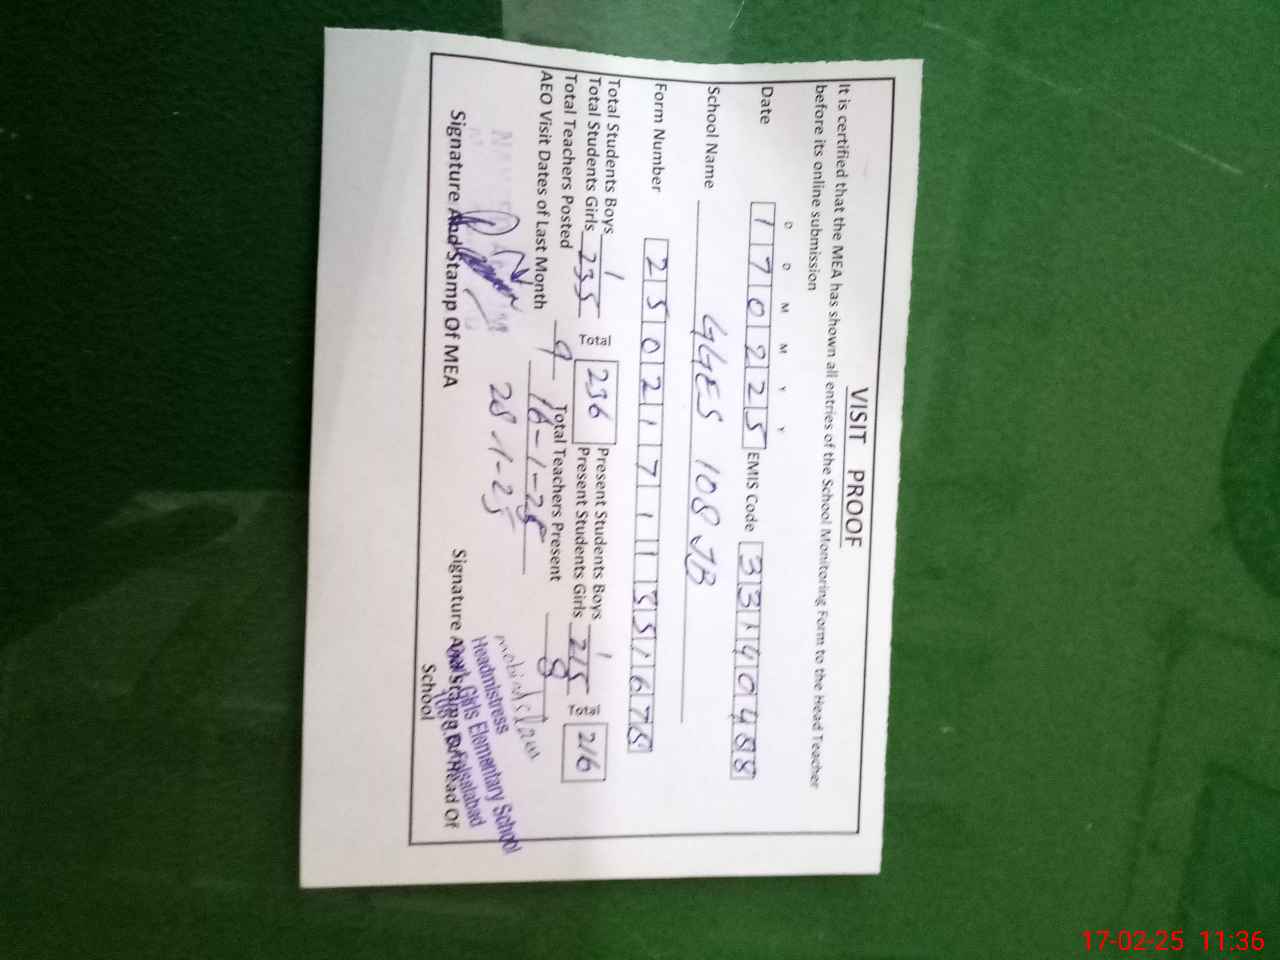 VISIT PROOF
It is certified that the MEA has shown all entries of the School Monitoring Form to the Head Teacher
before its online submission
D D M M Y Y
Date 170225 EMIS Code 33140488
School Name GGES 108 JB
Form Number 25021711551676
Total Students Boys 1 Total 236 Present Students Boys 1 Total 216
Total Students Girls 235 Present Students Girls 215
Total Teachers Posted 9 Total Teachers Present 8
AEO Visit Dates of Last Month 16-1-25
28-1-25
Signature And Stamp Of MEA
Signature And Stamp Of Head Of
School
Headmistress
Govt. Girls Elementary School
108 Faisalabad
17-02-25 11:36